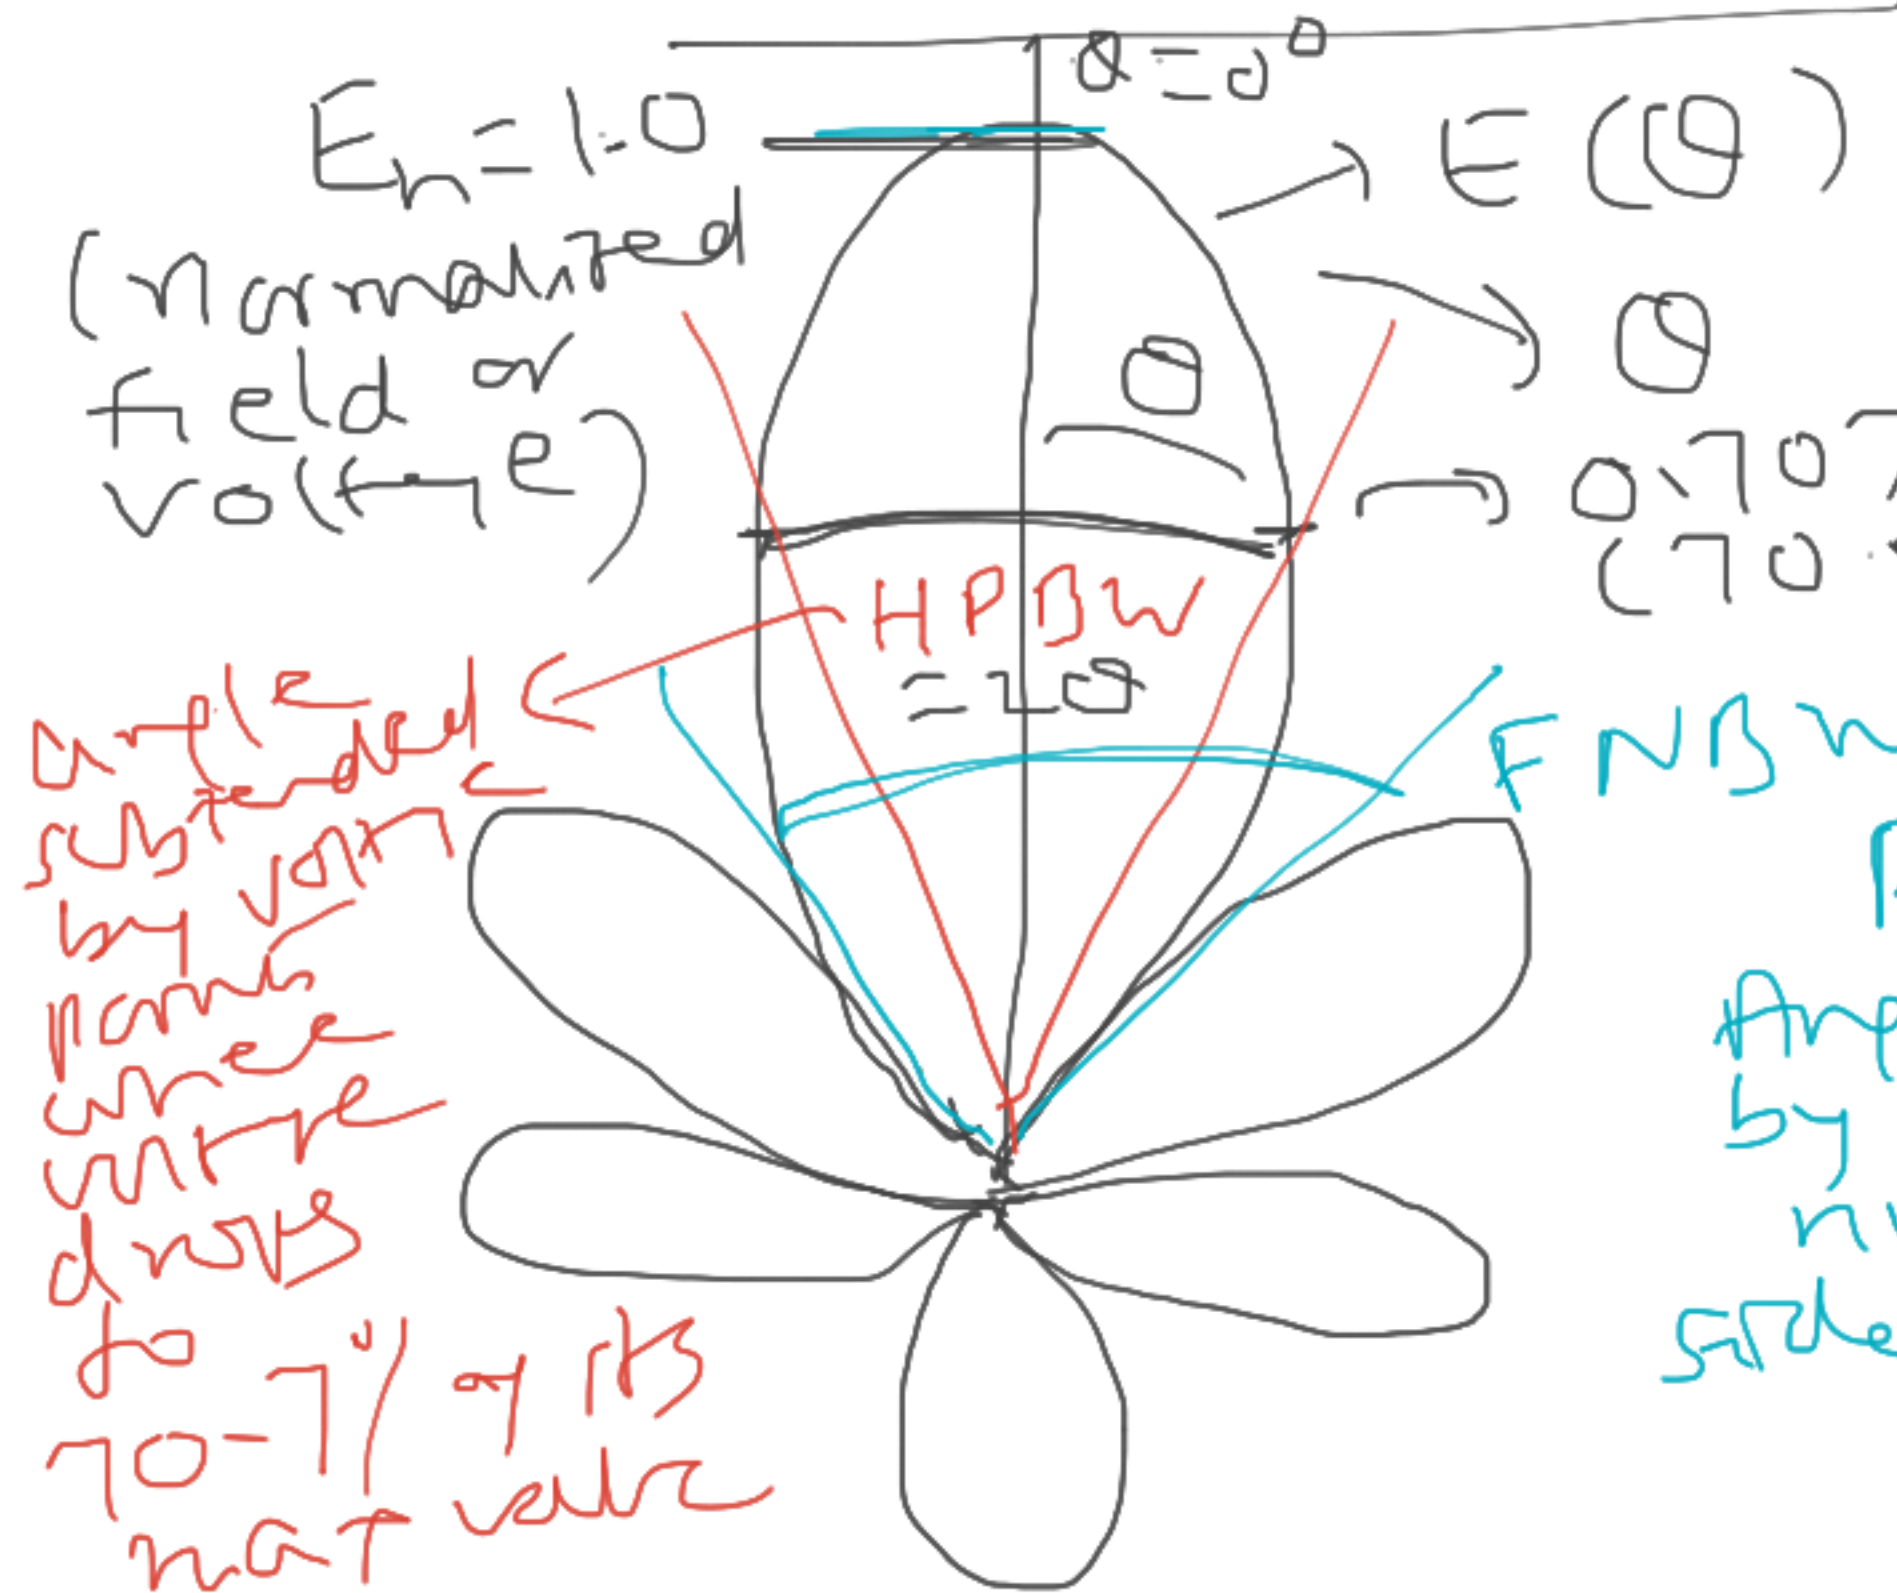 θ = 0°
En = 1.0
(normalized
field or
voltage)
E(θ)
θ
θ
0.707
(70.
HPBW
= 2θ
angle
subtended
by
points
where
drops
to
70-7% of its
max value
FNBW
by
side